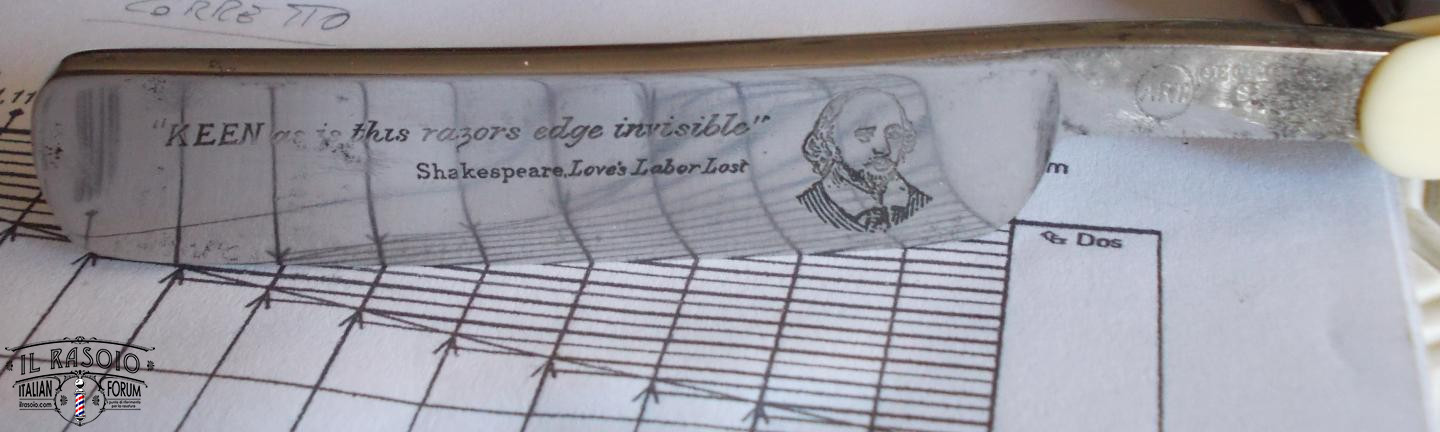 CORRETTO
"KEEN as is this razors edge invisible"
Shakespeare, Love's Labor Lost
ART
m
& Dos
IL RASOIO
ITALIAN FORUM
ilrasoio.com